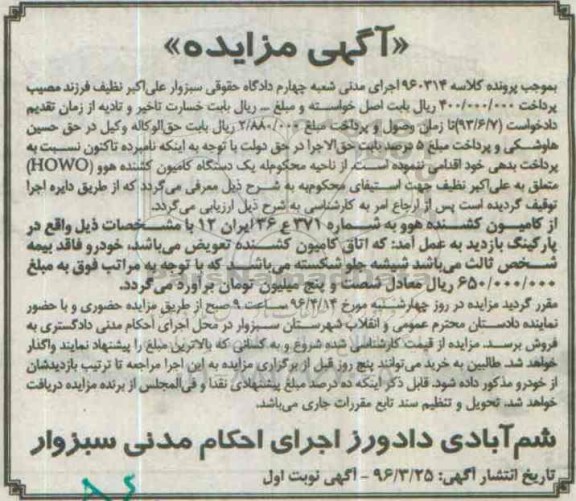 «آگهی مزایده»
بموجب پرونده کلاسه ۹۶۰۳۱۴ اجرای مدنی شعبه چهارم دادگاه حقوقی سبزوار علی‌اکبر نظیف فرزند مصیب
پرداخت ۴۰۰/۰۰۰/۰۰۰ ریال بابت اصل خواسته و مبلغ ... ریال بابت خسارت تاخیر و تادیه از زمان تقدیم
دادخواست (۹۳/۶/۷)تا زمان وصول و پرداخت مبلغ ۲/۸۸۰/۰۰۰ ریال بابت حق‌الوکاله وکیل در حق حسین
هاوشکی و پرداخت مبلغ ۵ درصد بابت حق‌الاجرا در حق دولت با توجه به اینکه نامبرده تاکنون نسبت به
پرداخت بدهی خود اقدامی ننموده است. از ناحیه محکوم‌له یک دستگاه کامیون کشنده هوو (HOWO)
متعلق به علی‌اکبر نظیف جهت استیفای محکوم‌به به شرح ذیل معرفی می‌گردد که از طریق دایره اجرا
توقیف گردیده است پس از ارجاع امر به کارشناسی به شرح ذیل ارزیابی می‌گردد.
از کامیون کشنده هوو به شماره ۳۷۱ ع ۳۶ ایران ۱۲ با مشخصات ذیل واقع در
پارکینگ بازدید به عمل آمد: که اتاق کامیون کشنده تعویض می‌باشد، خودرو فاقد بیمه
شخص ثالث می‌باشد شیشه جلو شکسته می‌باشد که با توجه به مراتب فوق به مبلغ
۶۵۰/۰۰۰/۰۰۰ ریال معادل شصت و پنج میلیون تومان برآورد می‌گردد.
مقرر گردید مزایده در روز چهارشنبه مورخ ۹۶/۴/۱۴ ساعت ۹ صبح از طریق مزایده حضوری و با حضور
نماینده دادستان محترم عمومی و انقلاب شهرستان سبزوار در محل اجرای احکام مدنی دادگستری به
فروش برسد. مزایده از قیمت کارشناسی شده شروع و به کسانی که بالاترین مبلغ را پیشنهاد نمایند واگذار
خواهد شد. طالبین به خرید می‌توانند پنج روز قبل از برگزاری مزایده به این اجرا مراجعه تا ترتیب بازدیدشان
از خودرو مذکور داده شود. قابل ذکر اینکه ده درصد مبلغ پیشنهادی نقدا و فی‌المجلس از برنده مزایده دریافت
خواهد شد، تحویل و تنظیم سند تابع مقررات جاری می‌باشد.
شم‌آبادی دادورز اجرای احکام مدنی سبزوار
تاریخ انتشار آگهی: ۹۶/۳/۲۵ - آگهی نوبت اول